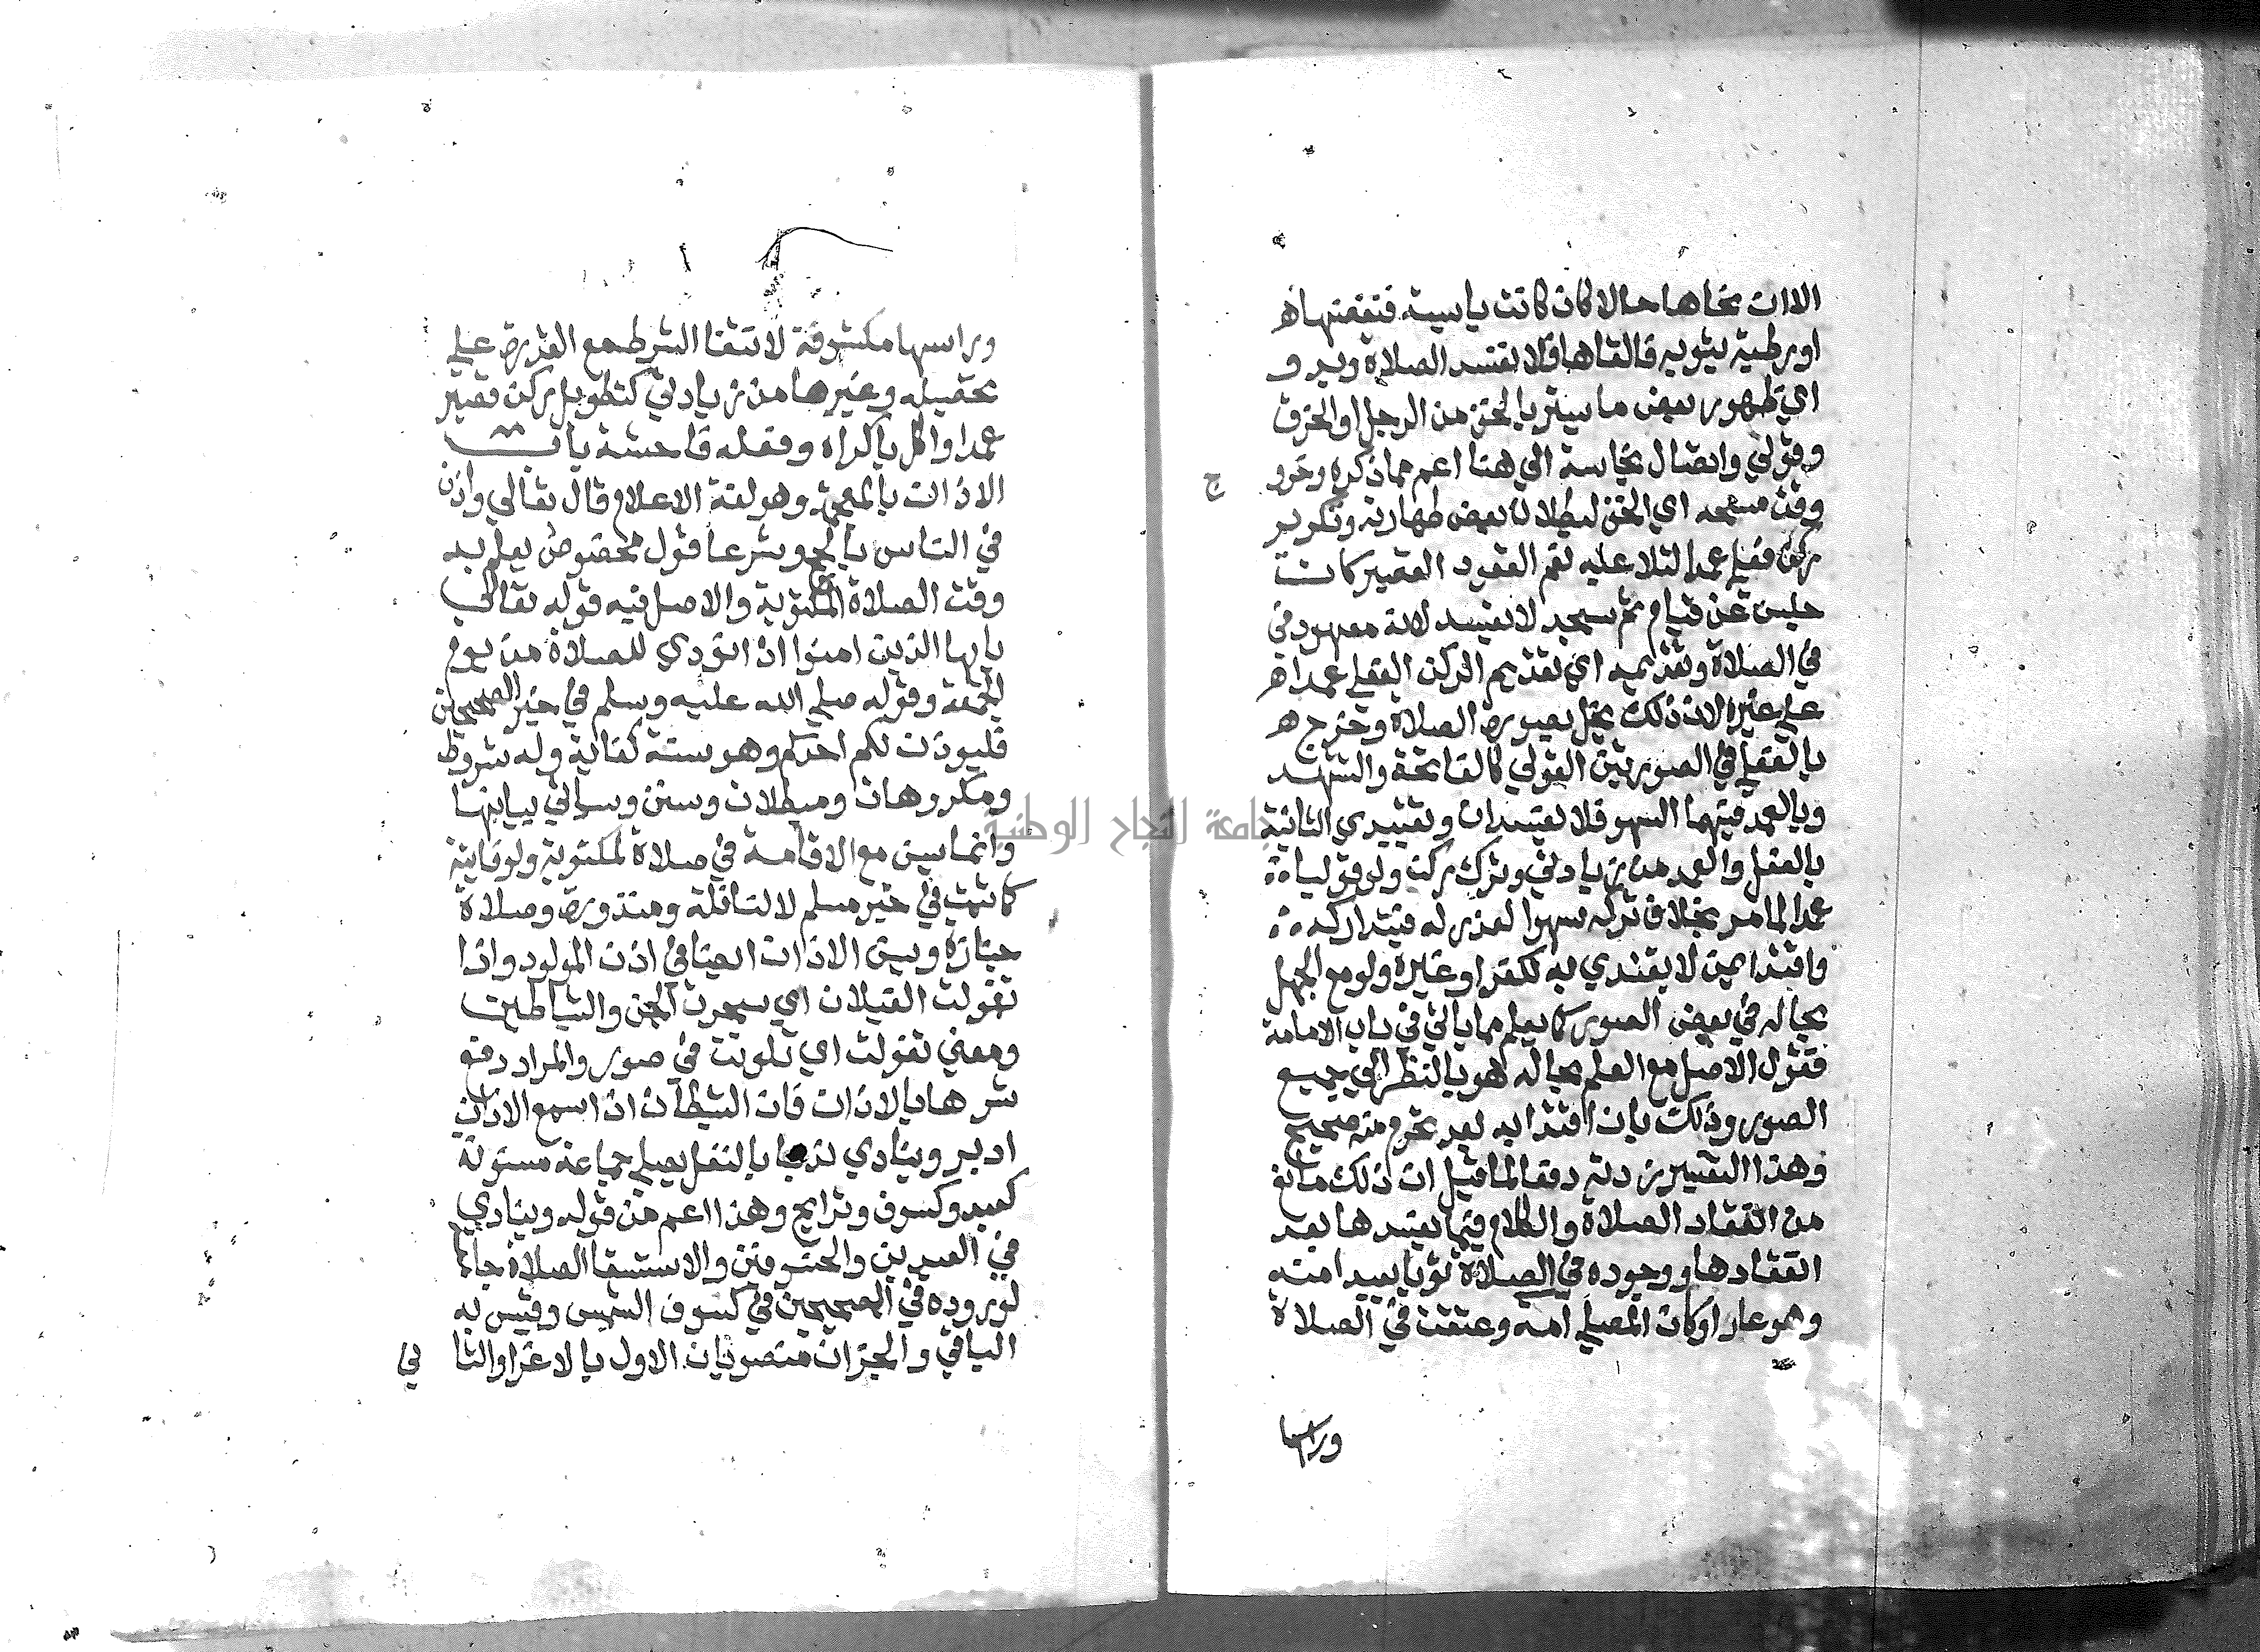 الا ان نحاها حالا كان كانت يابسة فنفضها
او رطبة بثوبه فالقاها فلا تفسد الصلاة وبدو
اي ظهور بعض ما ستر بالخف من الرجل او الخرق
وقولي واتصال نجاسة الي هنا اعم مما ذكره وخرو
ج
وقت مسحه اي الخف لبطلان بعض طهارته وتكرير
ركن فعلي عمدا لتلاعبه نعم القعود القصير كان
جلس عن قيام ثم سجد لا يفسد لانه معهود في
في الصلاة وتقديمه اي تقديم الركن الفعلي عمدا
علي غيره لان ذلك يخل بصورة الصلاة وخرج
بالفعلي في الصورتين القولي كالفاتحة والتشهد
وبالعمد فيهما السهو فلا يفسدان وتقييدي الثانية
بالفعل والعمد من زيادتي وترك ركن ولو قوليا
عمدا لما مر بخلاف تركه سهوا لعذره فيتداركه
واقتدا بمن لا يقتدي به لكفر او غيره ولو مع الجهل
بحاله في بعض الصور كما يعلم مما ياتي في باب الامامة
فقول الاصل مع العلم بحاله هو بالنظر الي جميع
الصور وذلك بان اقتدا به بعد تحرم منه صحيح
وهذا التقييد زدته دفعا لما قيل ان ذلك مانع
من انعقاد الصلاة والكلام فيما يفسدها بعد
انعقادها ووجوده في الصلاة ثوبا بعيدا منه
وهو عار او كان المصلي امة وعتقت في الصلاة
وراسها
وراسها مكشوفة لانتفا الشرط مع القدرة علي
تحصيله وغيرها من زيادتي كتطويل ركن قصير
عمدا واكل باكراه وفعله فاحشة باب
الاذان بالمعجمة وهو لغة الاعلام قال تعالي واذن
في الناس بالحج وشرعا قول مخصوص يعلم به
وقت الصلاة المكتوبة والاصل فيه قوله تعالي
يايها الذين امنوا اذا نودي للصلاة من يوم
الجمعة وقوله صلي الله عليه وسلم في خبر الصحيحين
فليوذن لكم احدكم وهو سنة كفاية وله شروط
ومكروهات ومبطلات وسنن وسياتي بيانها
وانما يسن مع الاقامة في صلاة لمكتوبة ولو فايتة
كما ثبت في خبر مسلم لا لنافلة ومنذورة وصلاة
جنازة ويسن الاذان ايضا في اذن المولود واذا
تغولت الغيلان اي سحرت الجن والشياطين
ومعني تغولت اي تلونت في صور والمراد دفع
شرها بالاذان فان الشيطان اذا سمع الاذان
ادبر وينادي ندبا بالنفل يصلي جماعة مسنونة
كعيد وكسوف وتراويح وهذا اعم من قوله وينادي
في العيدين والخسوفين والاستسقا الصلاة جامعة
لوروده في الصحيحين في كسوف الشمس وقيس به
الباقي والجزان منصوبان الاول بالاغرا والثا
ني
جامعة النجاح الوطنية